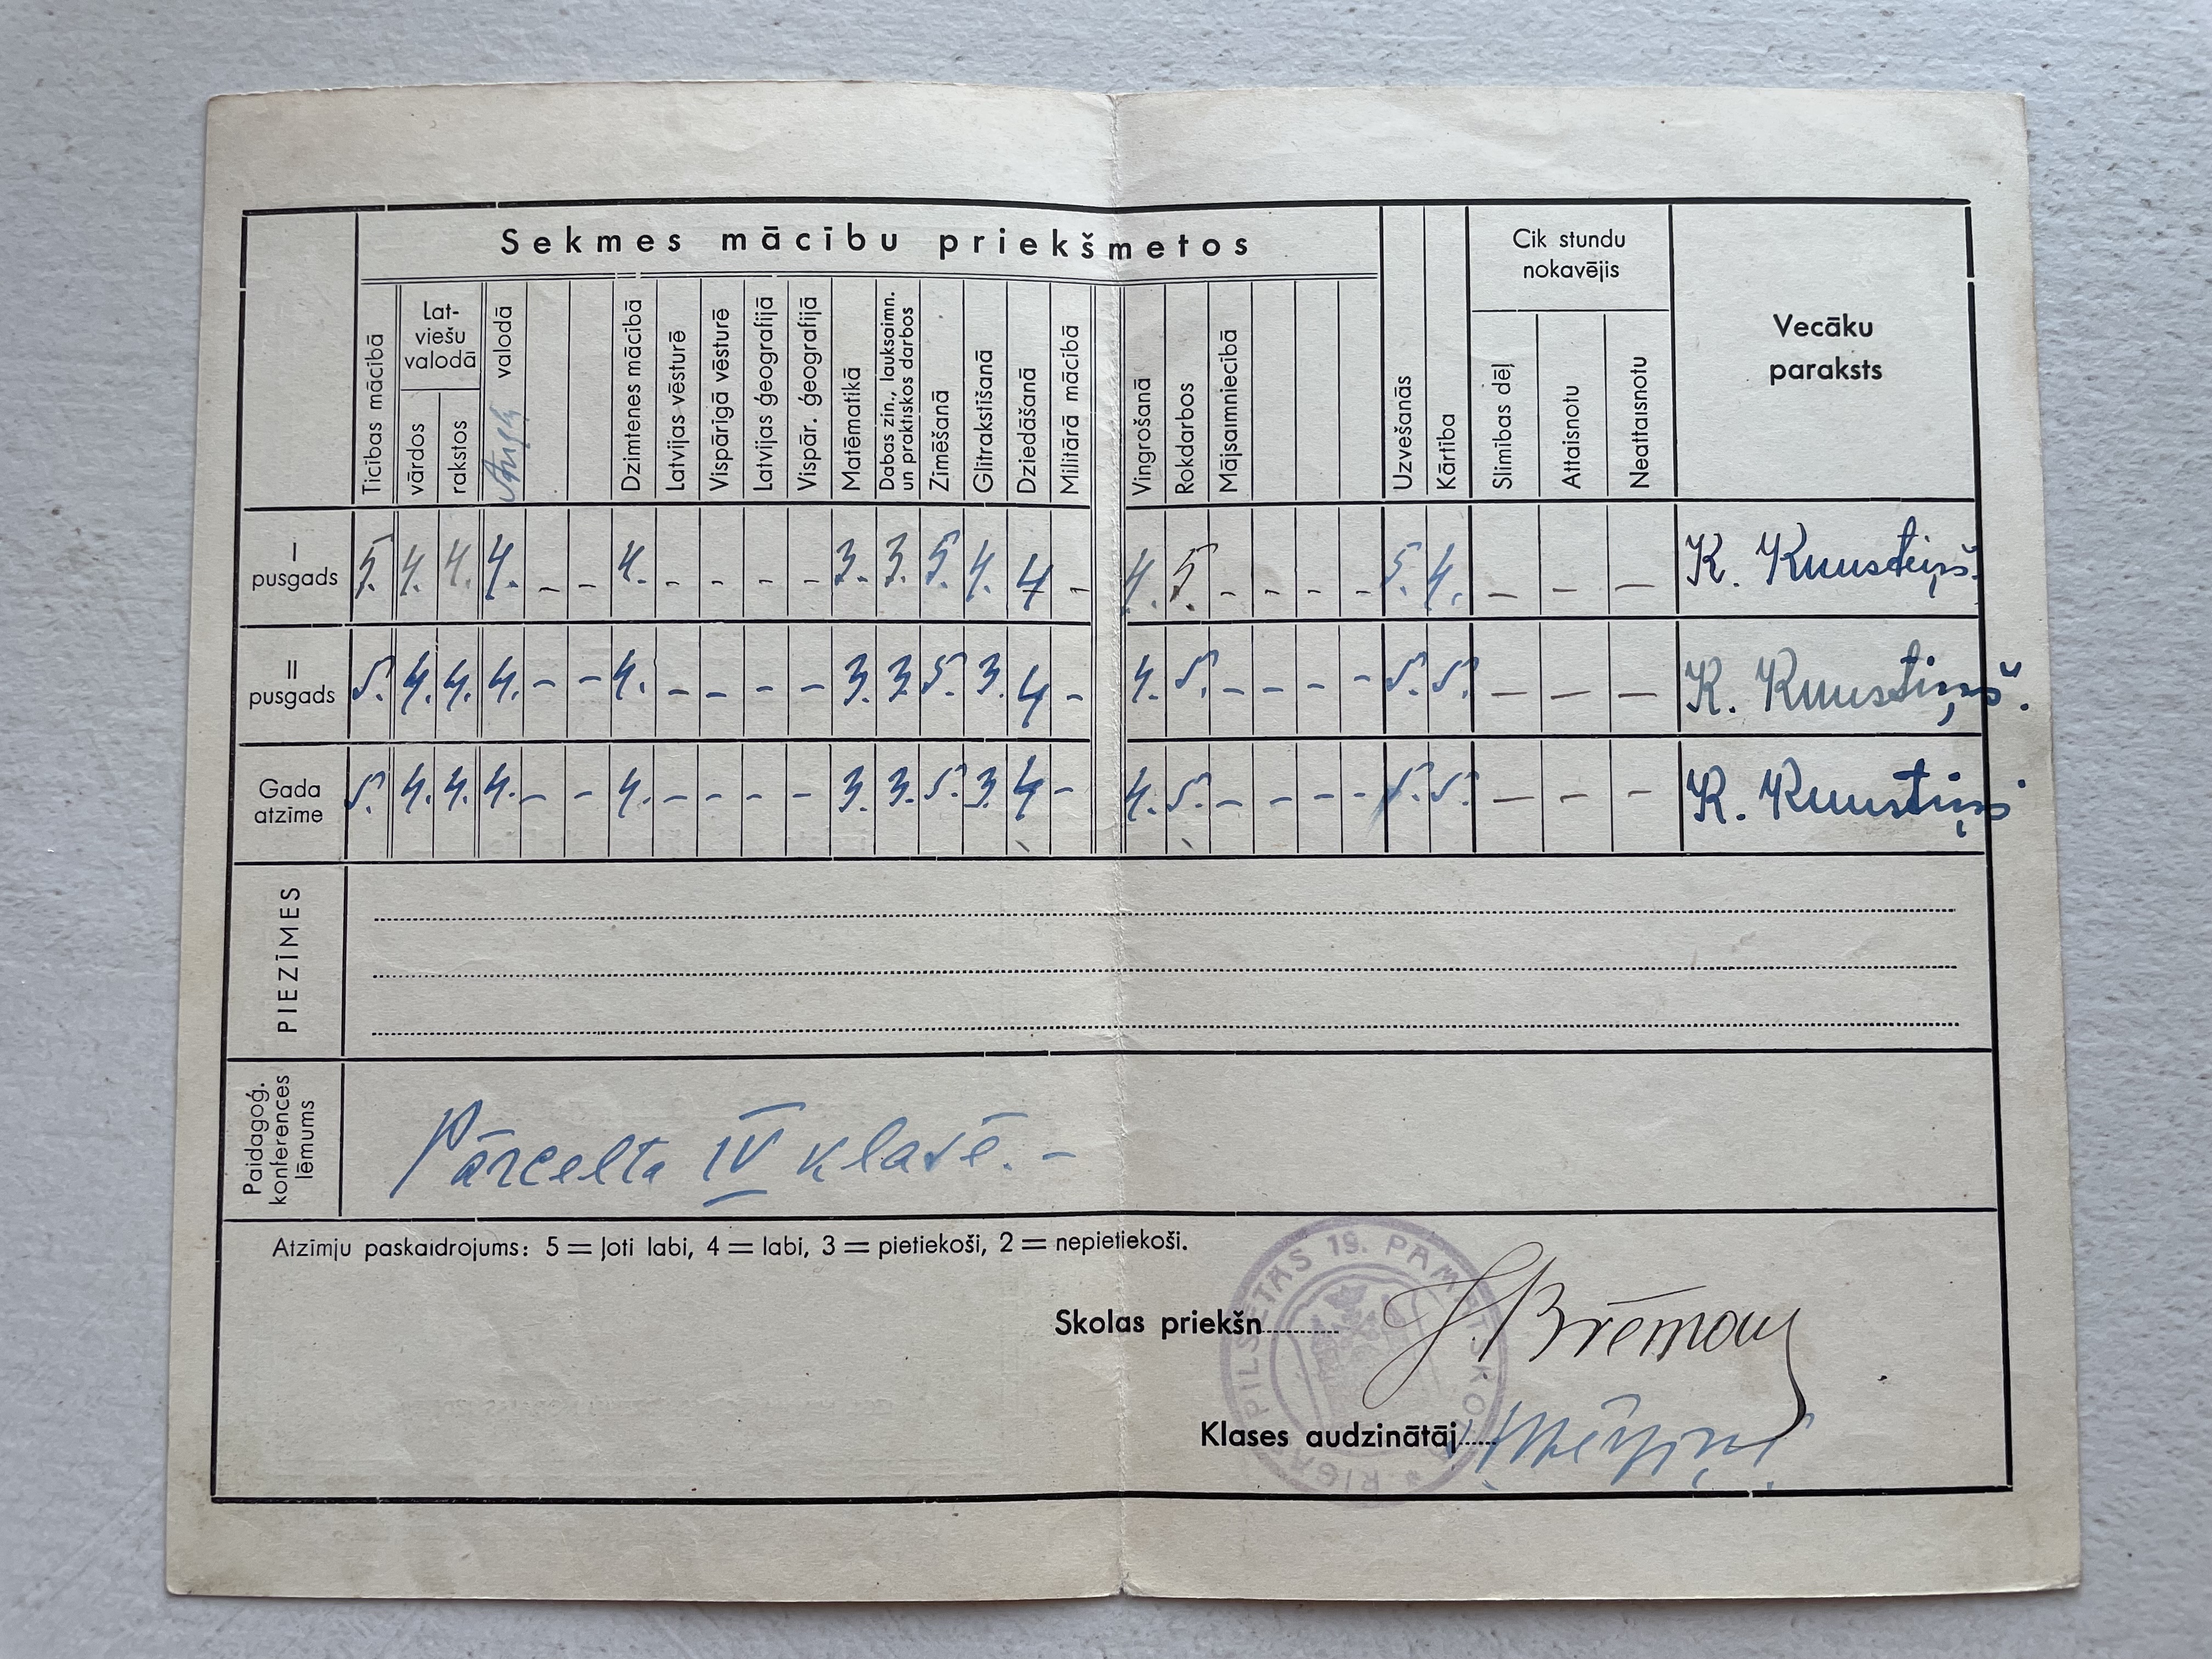 Sekmes mācību priekšmetos
Ticības mācībā
Latviešu valodā
vārdos
rakstos
Angļ valodā
Dzimtenes mācībā
Latvijas vēsturē
Vispārīgā vēsturē
Latvijas ģeografijā
Vispār. ģeografijā
Matēmatikā
Dabas zin., lauksaimn.
un praktiskos darbos
Zīmēšanā
Glītrakstīšanā
Dziedāšanā
Militārā mācībā
Vingrošanā
Rokdarbos
Mājsaimniecībā
Uzvešanās
Kārtība
Cik stundu
nokavējis
Slimības dēļ
Attaisnotu
Neattaisnotu
Vecāku
paraksts
I pusgads 5. 4. 4. 4. - - 4. - - - - 3. 3. 5. 4. 4 - 4. 5. - - - - 5. 4. - - -
II pusgads 5. 4. 4. 4. - - 4. - - - - 3. 3. 5. 3. 4 - 4. 5. - - - - 5. 5. - - -
Gada atzīme 5. 4. 4. 4. - - 4. - - - - 3. 3. 5. 3. 4 - 4. 5. - - - - 5. 5. - - -
PIEZĪMES
Paidagoģ.
konferences
lēmums
Pārcelta IV klasē. -
Atzīmju paskaidrojums: 5 = ļoti labi, 4 = labi, 3 = pietiekoši, 2 = nepietiekoši.
Skolas priekšn
Klases audzinātāj
RĪGAS PILSĒTAS 19. PAMATSKOLA